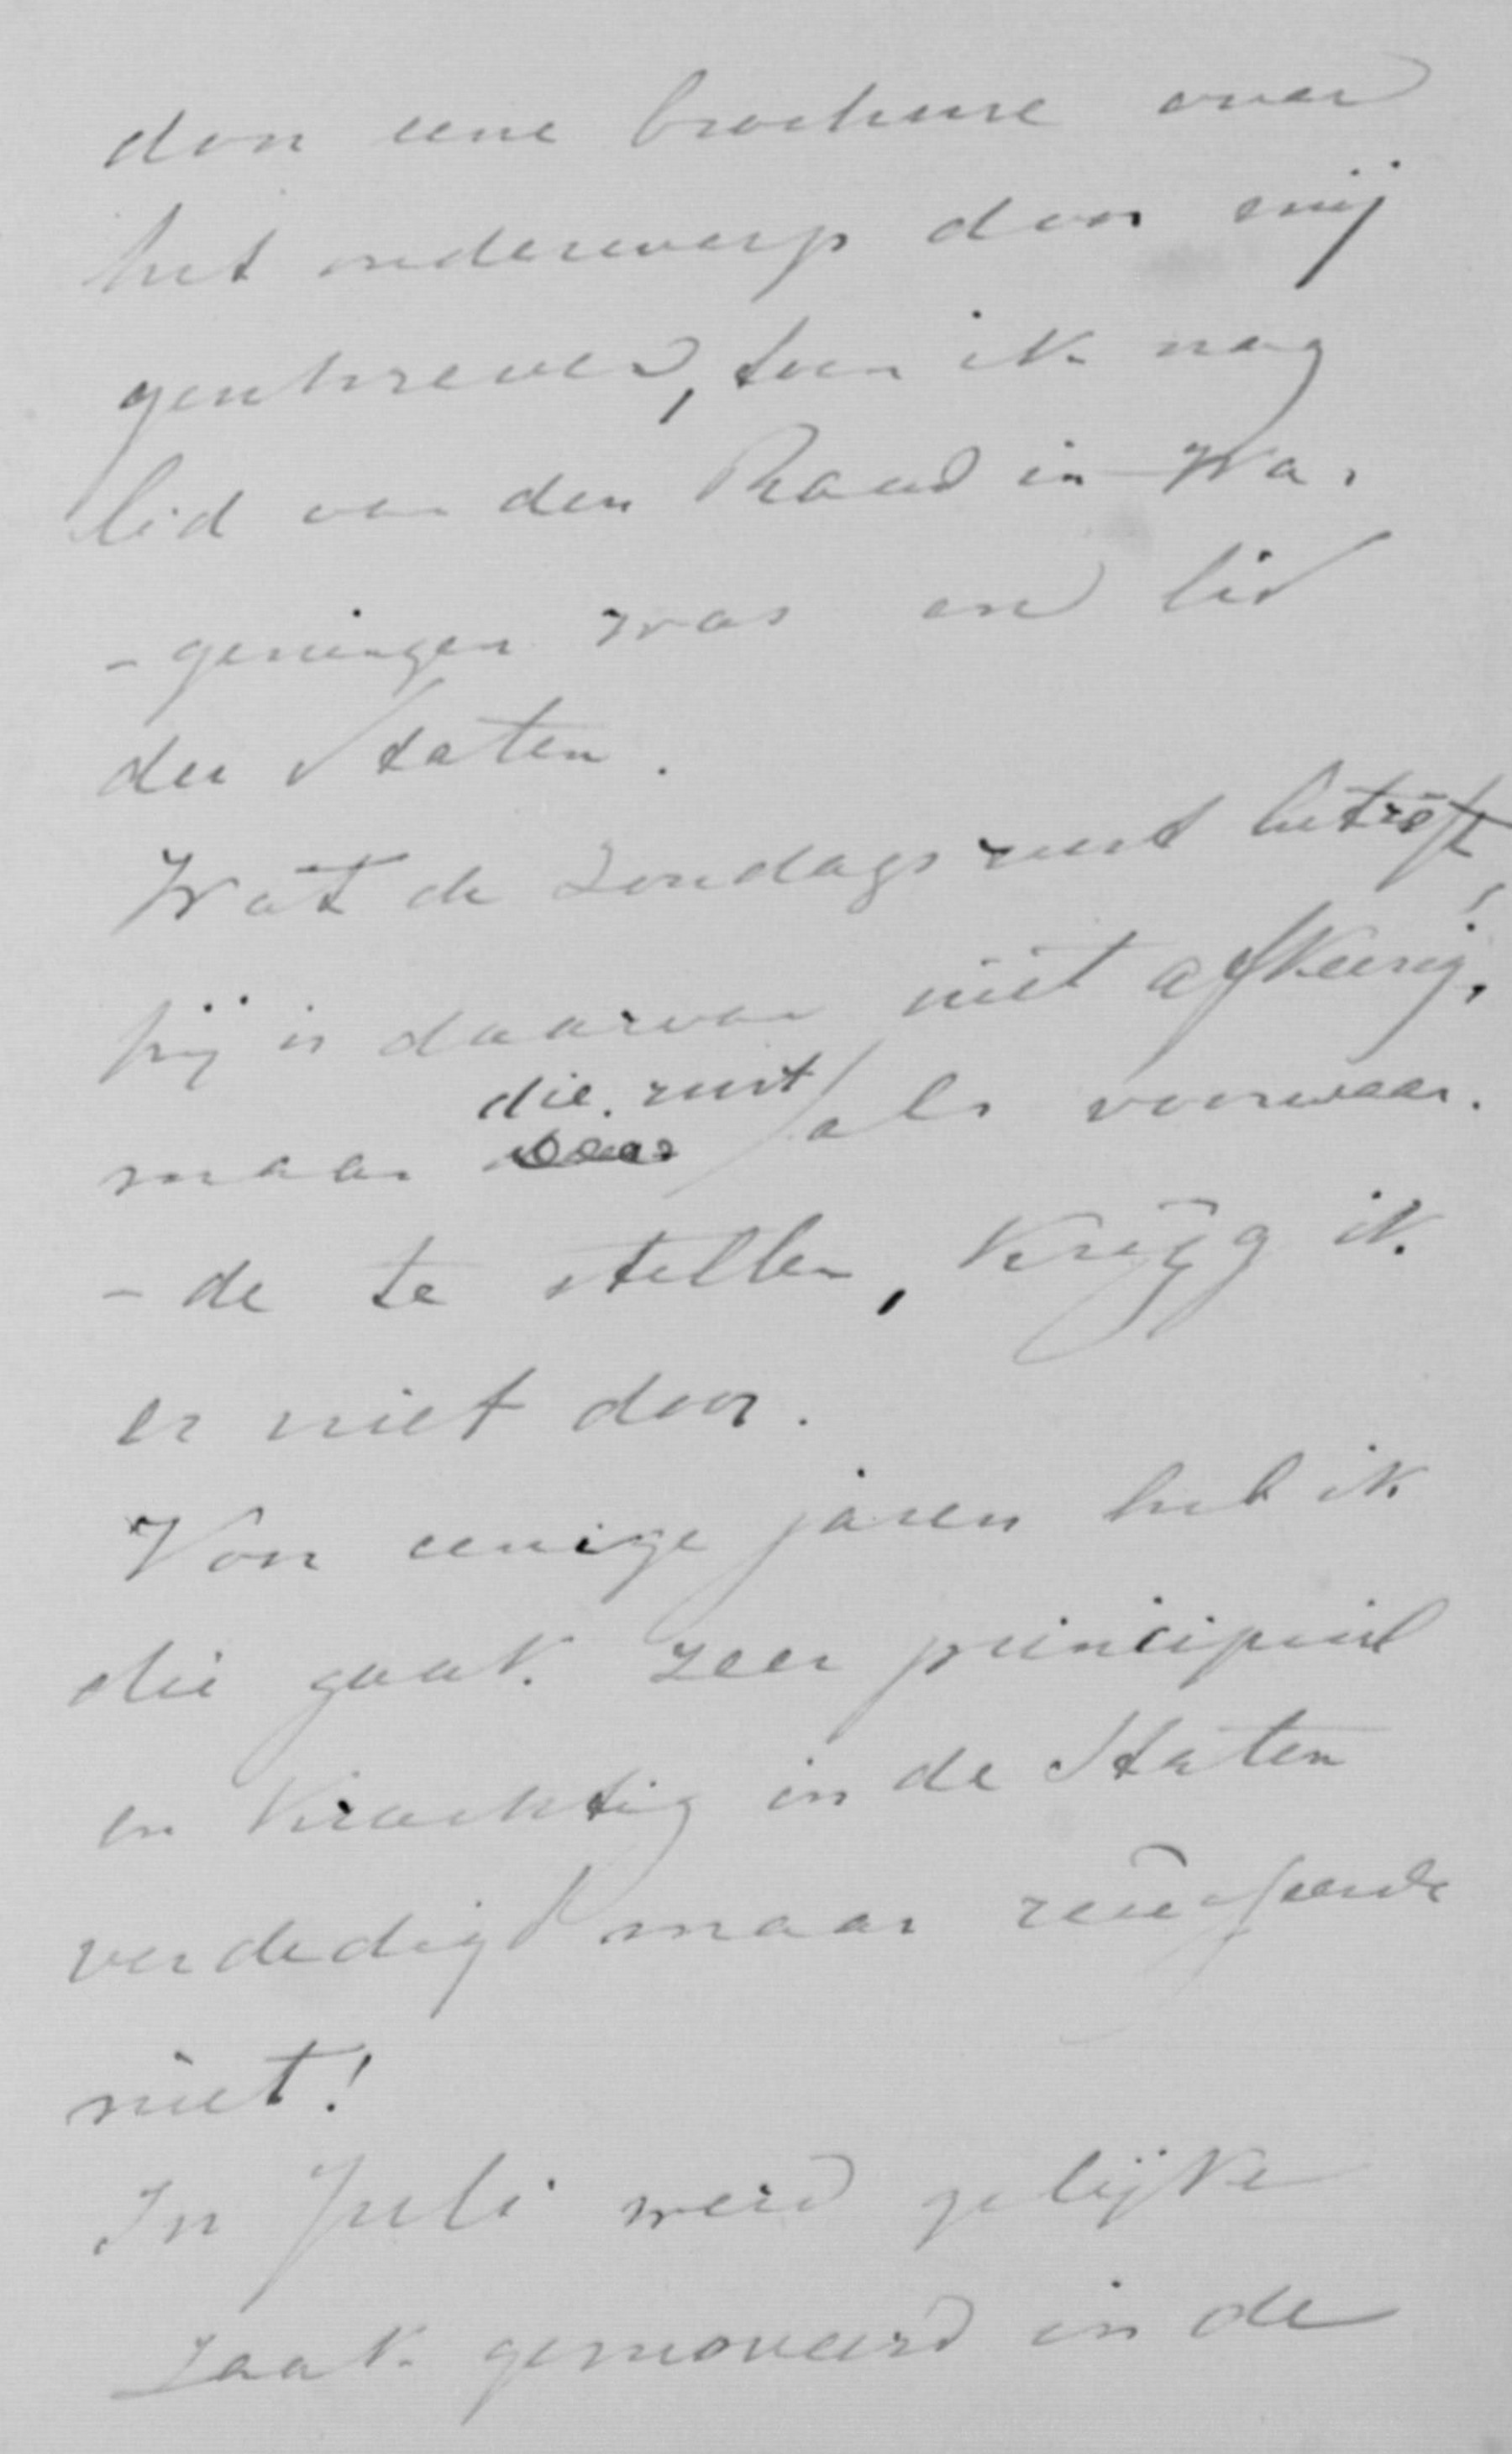 door eene brochure over
het onderwerp door mij
geschreven, toen ik nog
lid van den Raad in Wa-
-geningen was en lid
der Staten.
Wat de Zondagsrust betreft,
hij is daarvan niet afkeerig!
maar die rust als voorwaar-
-de te stellen, krijg ik
er niet door.
Voor eenige jaren heb ik
die zaak zeer principieel
en krachtig in de Staten
verdedigd maar reüsseerde
niet!
In Juli werd gelijke
zaak gemoveerd in de